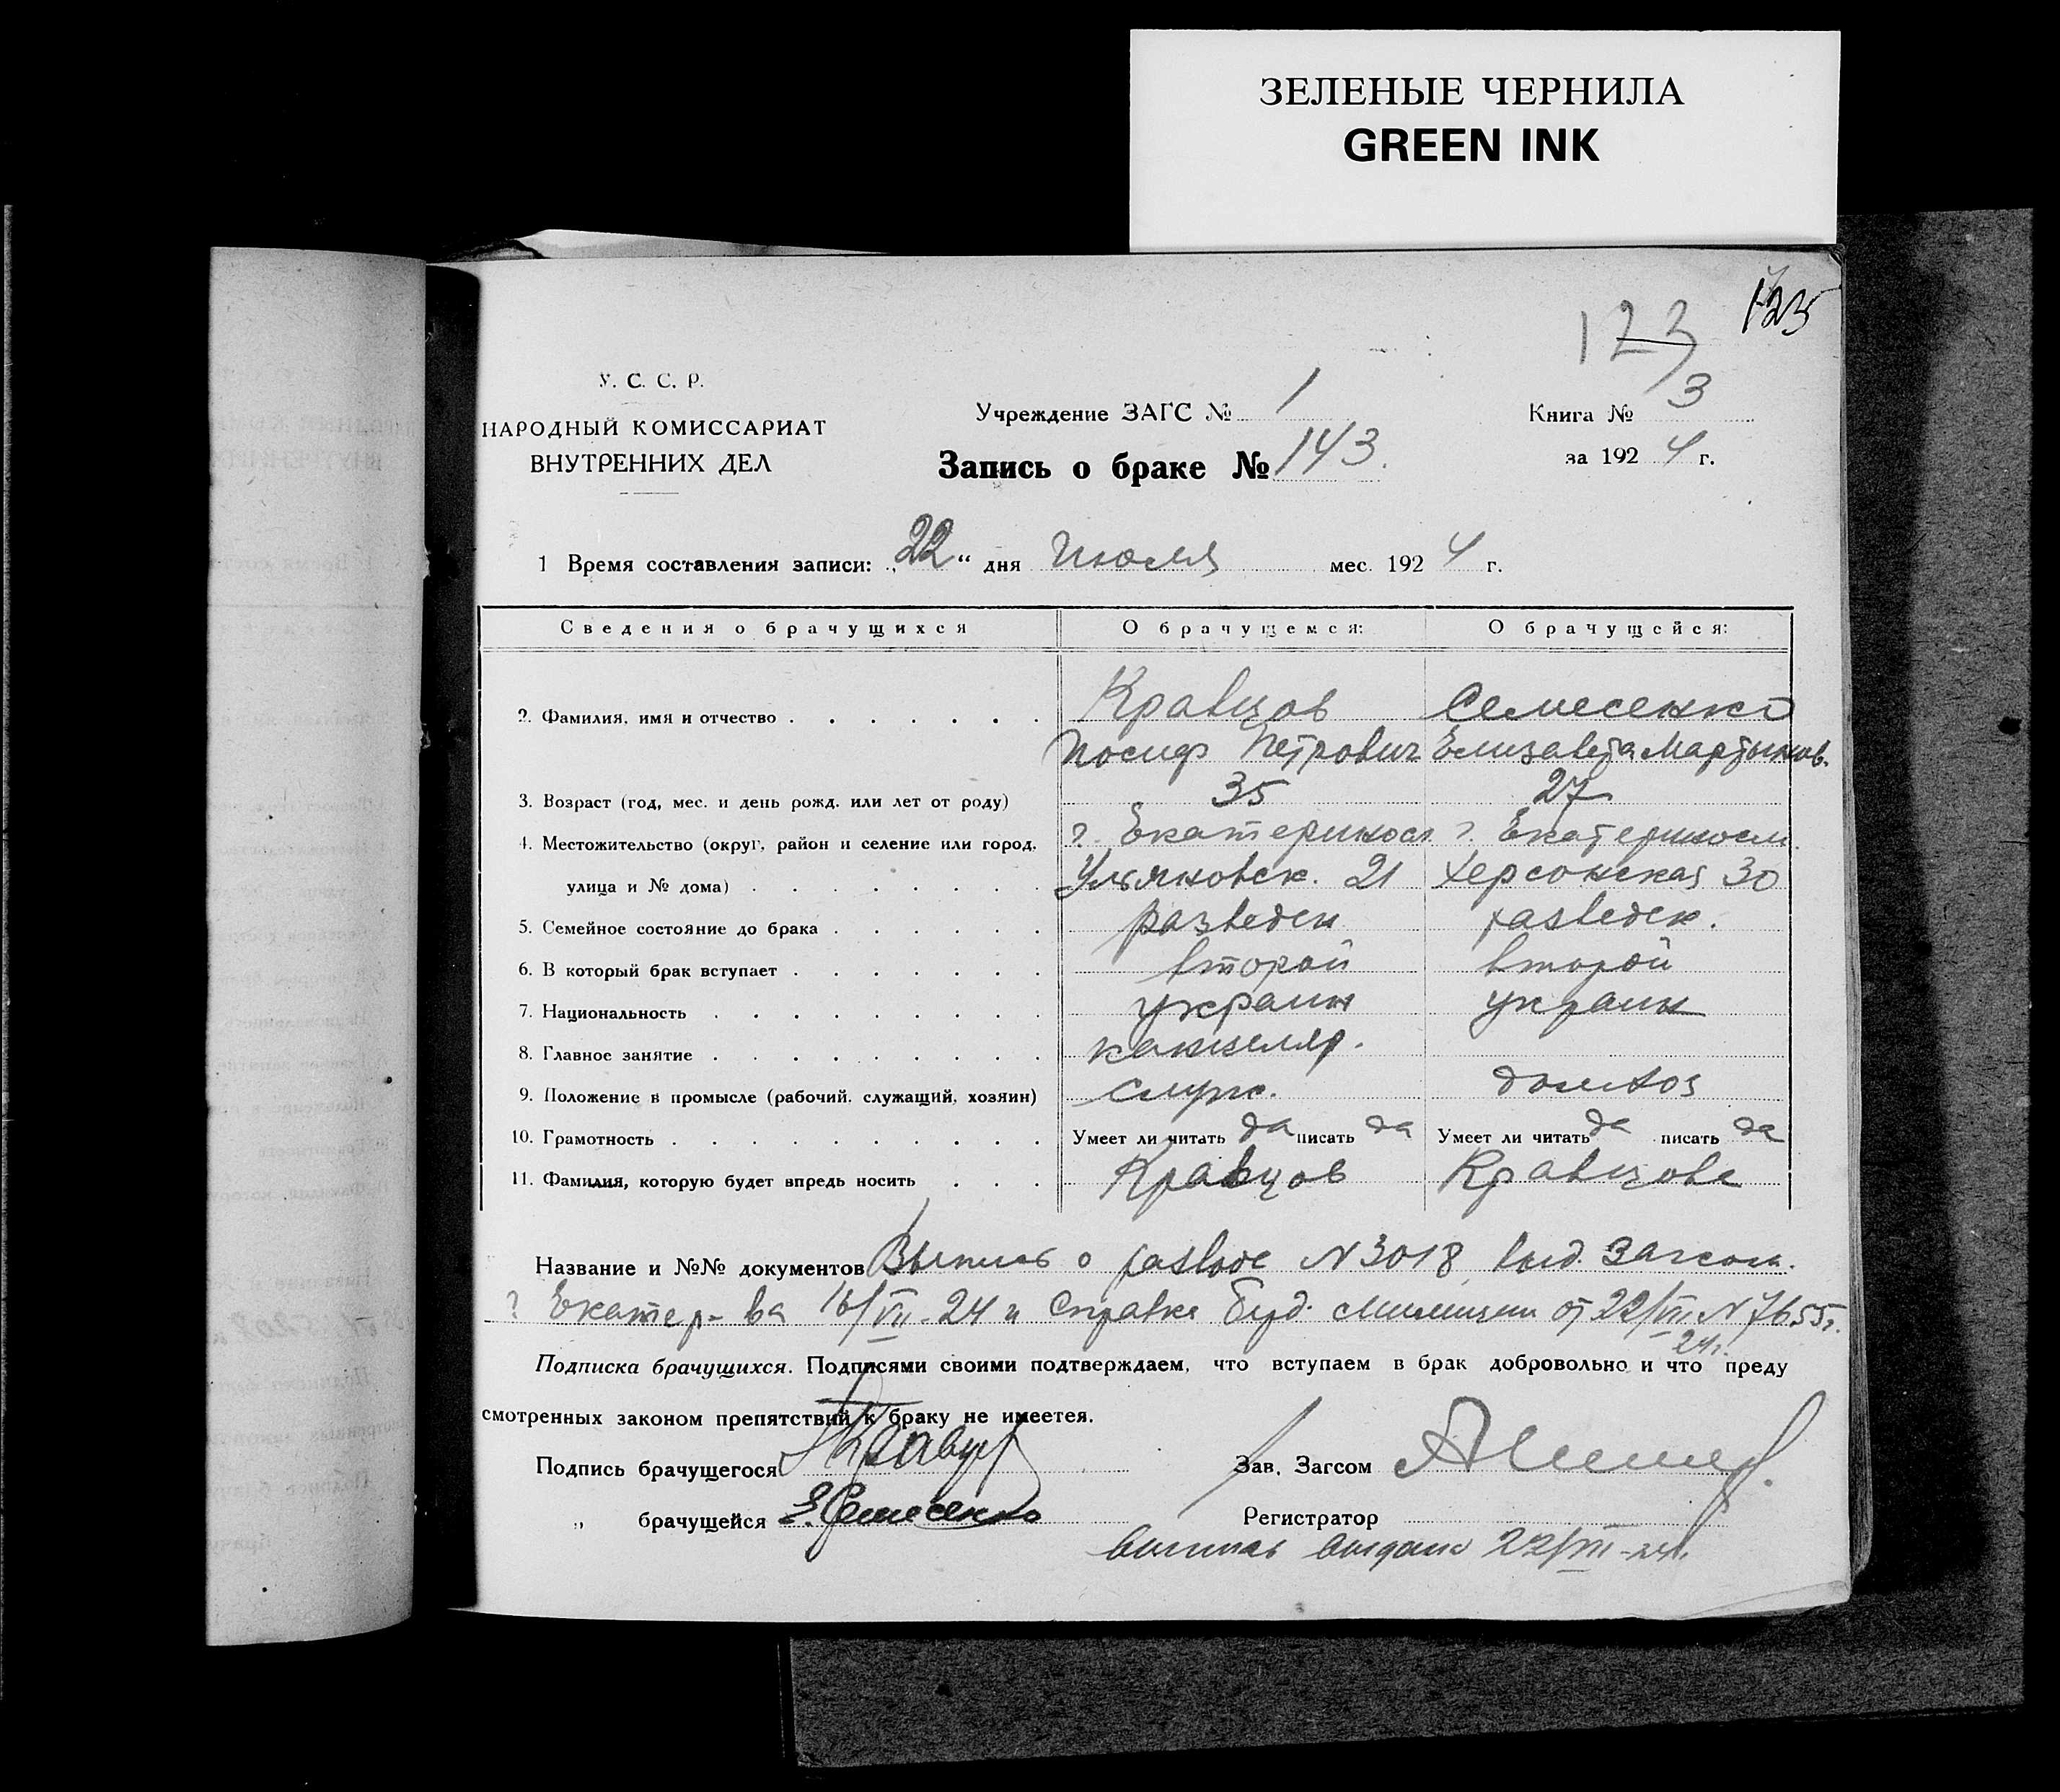 ЗЕЛЕНЫЕ ЧЕРНИЛА
GREEN INK
125
123
У. С. С. Р.
НАРОДНЫЙ КОМИССАРИАТ
ВНУТРЕННИХ ДЕЛ
Учреждение ЗАГС № 1
Запись о браке № 143.
Книга № 3
за 1924 г.
1 Время составления записи: „22“ дня Июля мес. 1924 г.
Сведения о брачущихся О брачущемся: О брачущейся:
2. Фамилия, имя и отчество Кравцов Семесенко
Иосиф Петрович Елизавета Мартынов.
3. Возраст (год, мес. и день рожд. или лет от роду) 35 27
4. Местожительство (округ, район и селение или город, г. Екатериносл. г. Екатериносл.
улица и № дома) Ульяновск. 21 Херсонская 30
5. Семейное состояние до брака разведен разведен.
6. В который брак вступает второй второй
7. Национальность украин украин
8. Главное занятие канцеляр.
9. Положение в промысле (рабочий, служащий, хозяин) служ. домхоз
10. Грамотность Умеет ли читать да писать да Умеет ли читать да писать да
11. Фамилия, которую будет впредь носить Кравцов Кравцова
Название и №№ документов Выпись о разводе N 3018, выд. Загсом.
г. Екатер-ва 16/VII-24 и справка Буд. милиции от 22/VII N 7655.
24г.
Подписка брачущихся. Подписями своими подтверждаем, что вступаем в брак добровольно и что преду
смотренных законом препятствий к браку не имеется.
Подпись брачущегося Кравц
Зав. Загсом
„ брачущейся Е. Семесенко
Регистратор
выпись выдана 22/VII-24г.